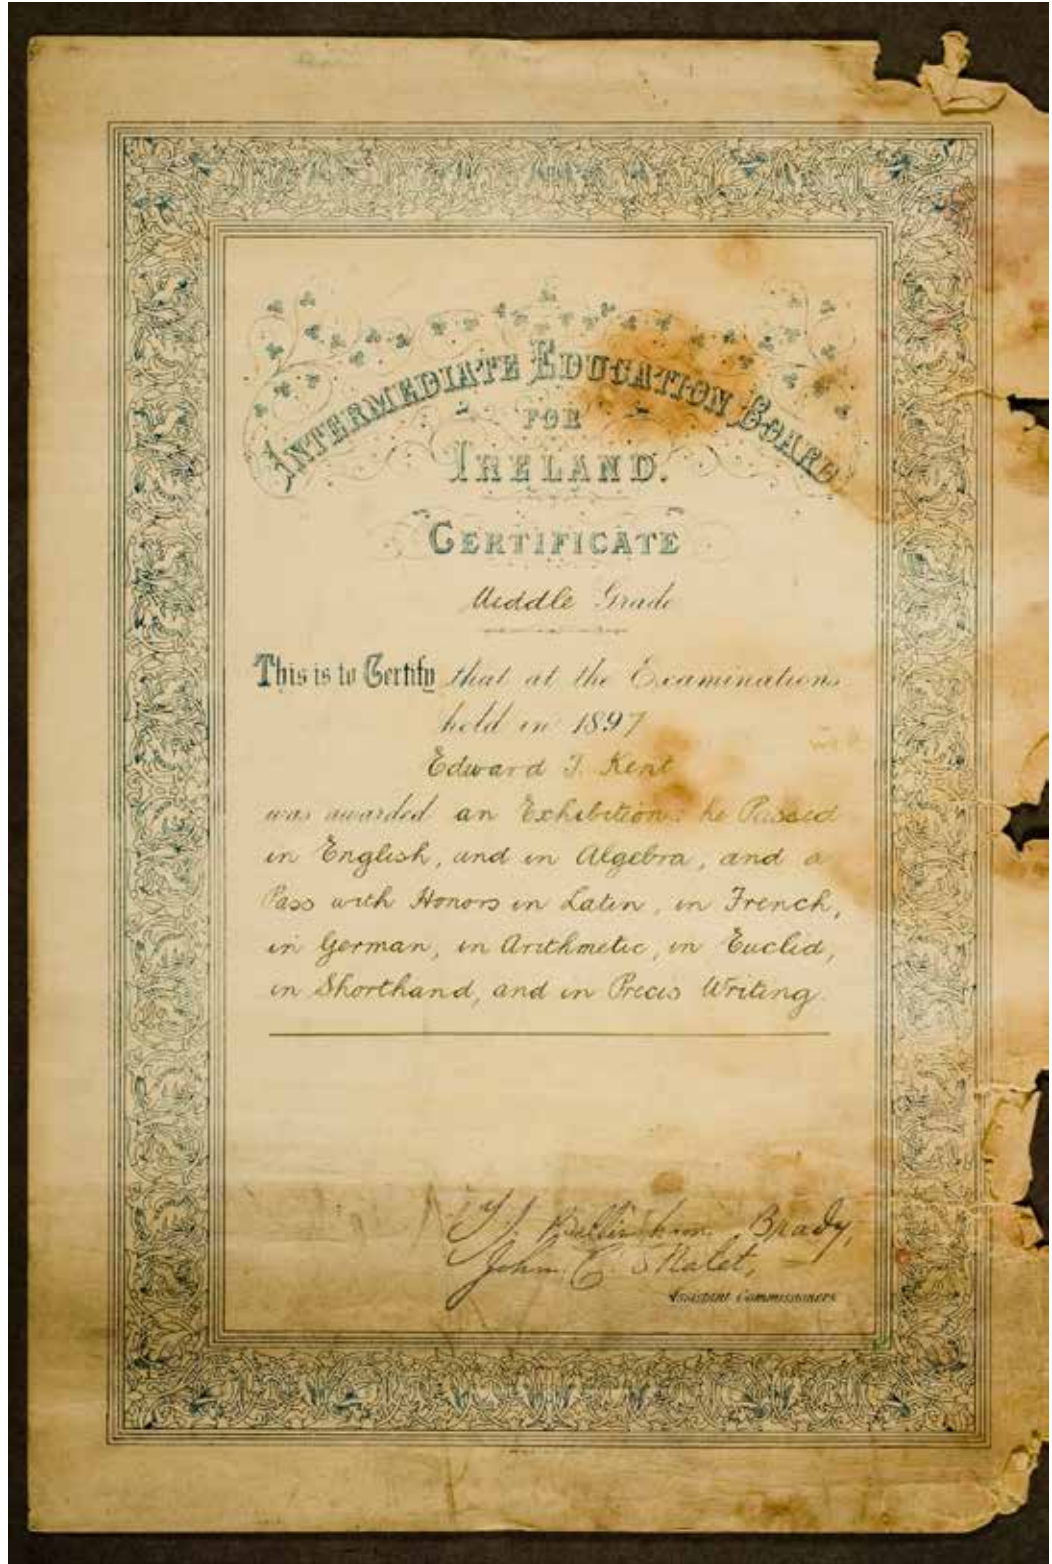 INTERMEDIATE EDUCATION BOARD
FOR
IRELAND.
CERTIFICATE
Middle Grade
This is to Certify that at the Examinations
held in 1897
Edward T. Kent
was awarded an Exhibition: he Passed
in English, and in Algebra, and a
Pass with Honors in Latin, in French,
in German, in Arithmetic, in Euclid,
in Shorthand, and in Precis Writing.
Bellingham Brady,
John C. Malet,
Assistant Commissioners